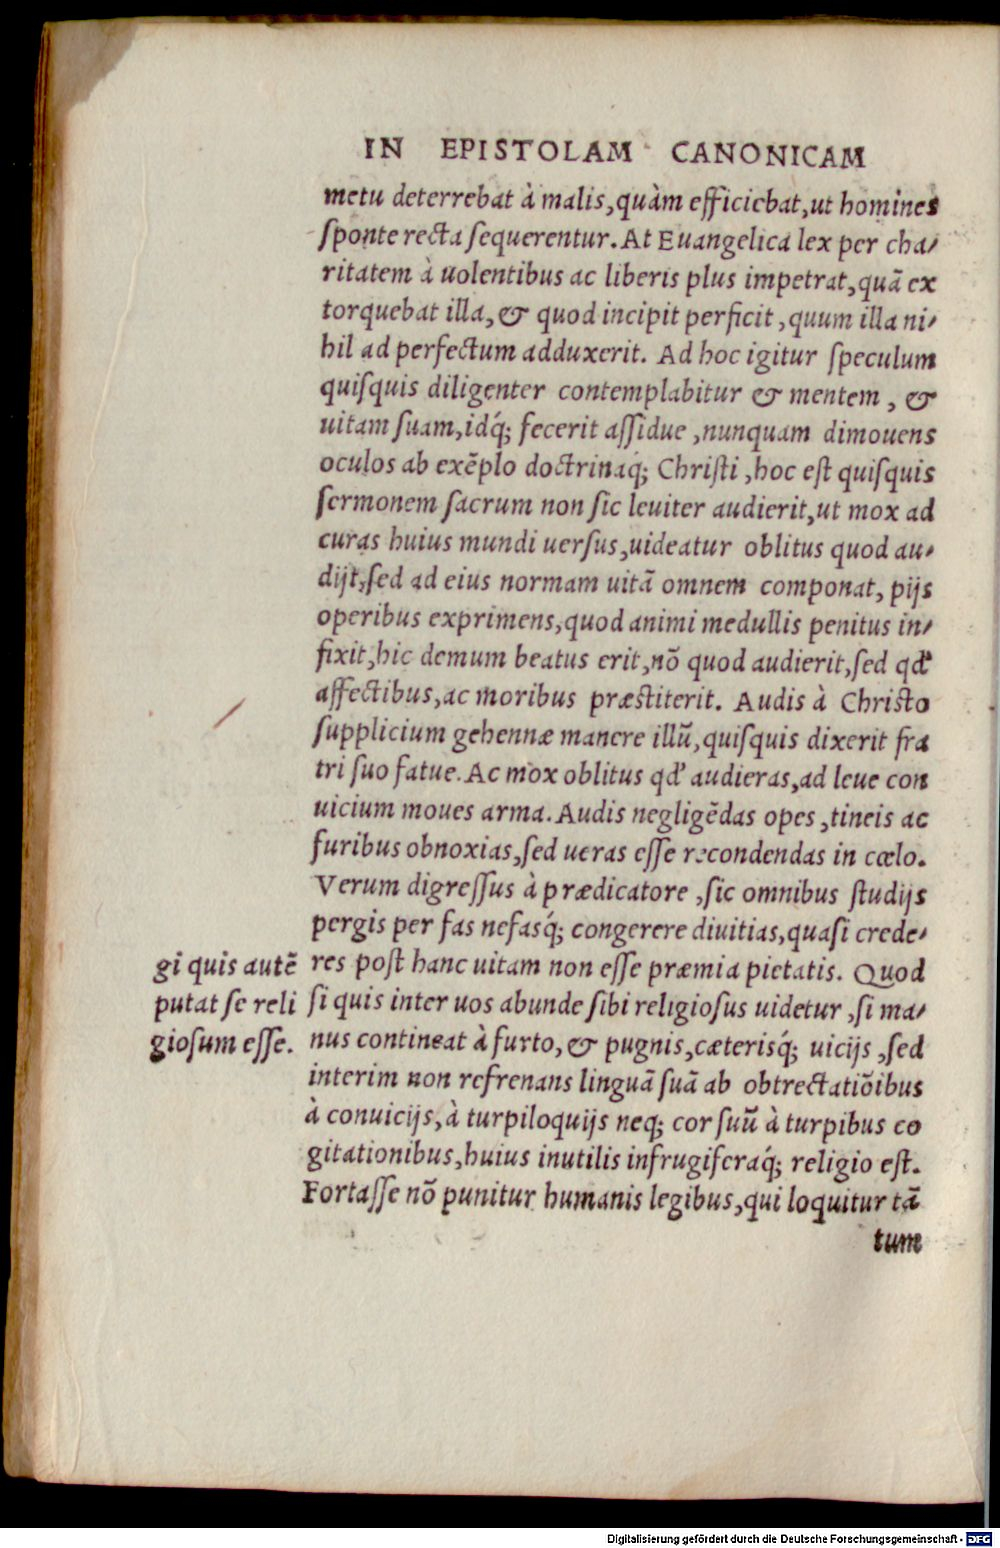 IN EPISTOLAM CANONICAM
metu deterrebat à malis, quàm efficiebat, ut homines
sponte recta sequerentur. At Euangelica lex per cha/
ritatem à uolentibus ac liberis plus impetrat, quã ex
torquebat illa, & quod incipit perficit, quum illa ni/
hil ad perfectum adduxerit. Ad hoc igitur speculum
quisquis diligenter contemplabitur & mentem, &
uitam suam, idq́; fecerit assidue, nunquam dimouens
oculos ab exẽplo doctrinaq́; Christi, hoc est quisquis
sermonem sacrum non sic leuiter audierit, ut mox ad
curas huius mundi uersus, uideatur oblitus quod au/
dijt, sed ad eius normam uitã omnem componat, pijs
operibus exprimens, quod animi medullis penitus in/
fixit, hic demum beatus erit, nõ quod audierit, sed qđ
affectibus, ac moribus præstiterit. Audis à Christo
supplicium gehennæ manere illũ, quisquis dixerit fra
tri suo fatue. Ac mox oblitus qđ audieras, ad leue con
uicium moues arma. Audis negligẽdas opes, tineis ac
furibus obnoxias, sed ueras esse recondendas in cœlo.
Verum digressus à prædicatore, sic omnibus studijs
pergis per fas nefasq́; congerere diuitias, quasi crede/
res post hanc uitam non esse præmia pietatis. Quod
si quis inter uos abunde sibi religiosus uidetur, si ma/
nus contineat à furto, & pugnis, cæterisq́; uicijs, sed
interim non refrenans linguã suã ab obtrectatiõibus
à conuicijs, à turpiloquijs neq; cor suũ à turpibus co
gitationibus, huius inutilis infrugiferaq́; religio est.
Fortasse nõ punitur humanis legibus, qui loquitur tã
tum
gi quis autẽ
putat se reli
giosum esse.
Digitalisierung gefördert durch die Deutsche Forschungsgemeinschaft - DFG